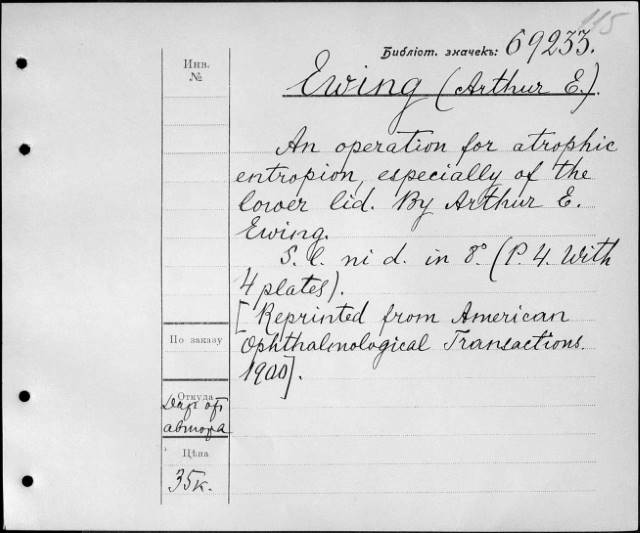 115
Библіот. значекъ: 69233.
Ewing (Arthur E.).
An operation for atrophic
entropion, especially of the
lower lid. By Arthur E.
Ewing.
S. l. ni d. in 8° (P. 4. With
4 plates).
[Reprinted from American
Ophthalmological Transactions.
1900].
Инв.
№
По заказу
Откуда
Даръ отъ
автора
Цѣна
35к.